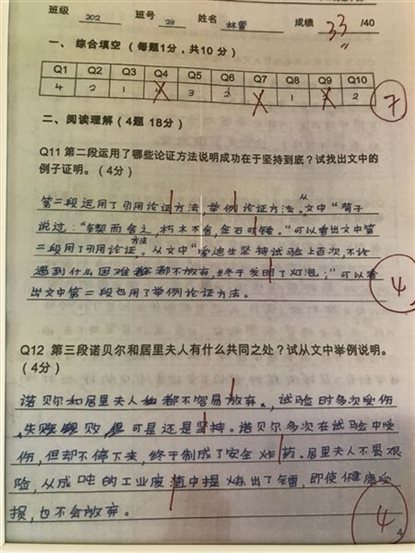 班级 202 班号 28 姓名 林萱 成绩 33 /40
一、综合填空（每题1分，共10分）
Q1 Q2 Q3 Q4 Q5 Q6 Q7 Q8 Q9 Q10
4 2 1 3 2 1 2
7
二、阅读理解（4题 18分）
Q11 第二段运用了哪些论证方法说明成功在于坚持到底？试找出文中的
例子证明。（4分）
第二段运用了引用论证方法，举例论证方法。从文中“荀子
说过：“锲而舍之，朽木不舍，金石可镂。”可以看出文中第
二段用了引用论证方法。从文中“爱迪生坚持试验上百次，不论
遇到什么困难都不放弃，终于发明了灯泡；”可以看
出文中第二段也用了举例论证方法。
4
Q12 第三段诺贝尔和居里夫人有什么共同之处？试从文中举例说明。
（4分）
诺贝尔和居里夫人都不容易放弃。试验时多次受伤
失败 可是还是坚持。诺贝尔多次在试验中受
伤，但却不停下来，终于制成了安全炸药。居里夫人不畏艰
险，从成吨的工业废渣中提炼出了镭，即使健康受
损，也不会放弃。
4
4